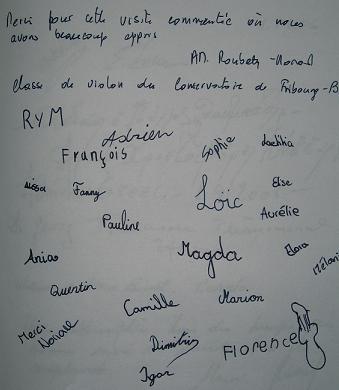 Merci pour cette visite commentée où nous
avons beaucoup appris
AN. Roubaty
Classe de violon du Conservatoire de Fribourg-B
RYM
Adrien
François
Sophie
Laetitia
Aïssa
Fanny
Loïc
Elise
Aurélie
Pauline
Anias
Magda
Elora
Mélani
Quentin
Camille
Marion
Merci
Dimitri
Florence
Igor